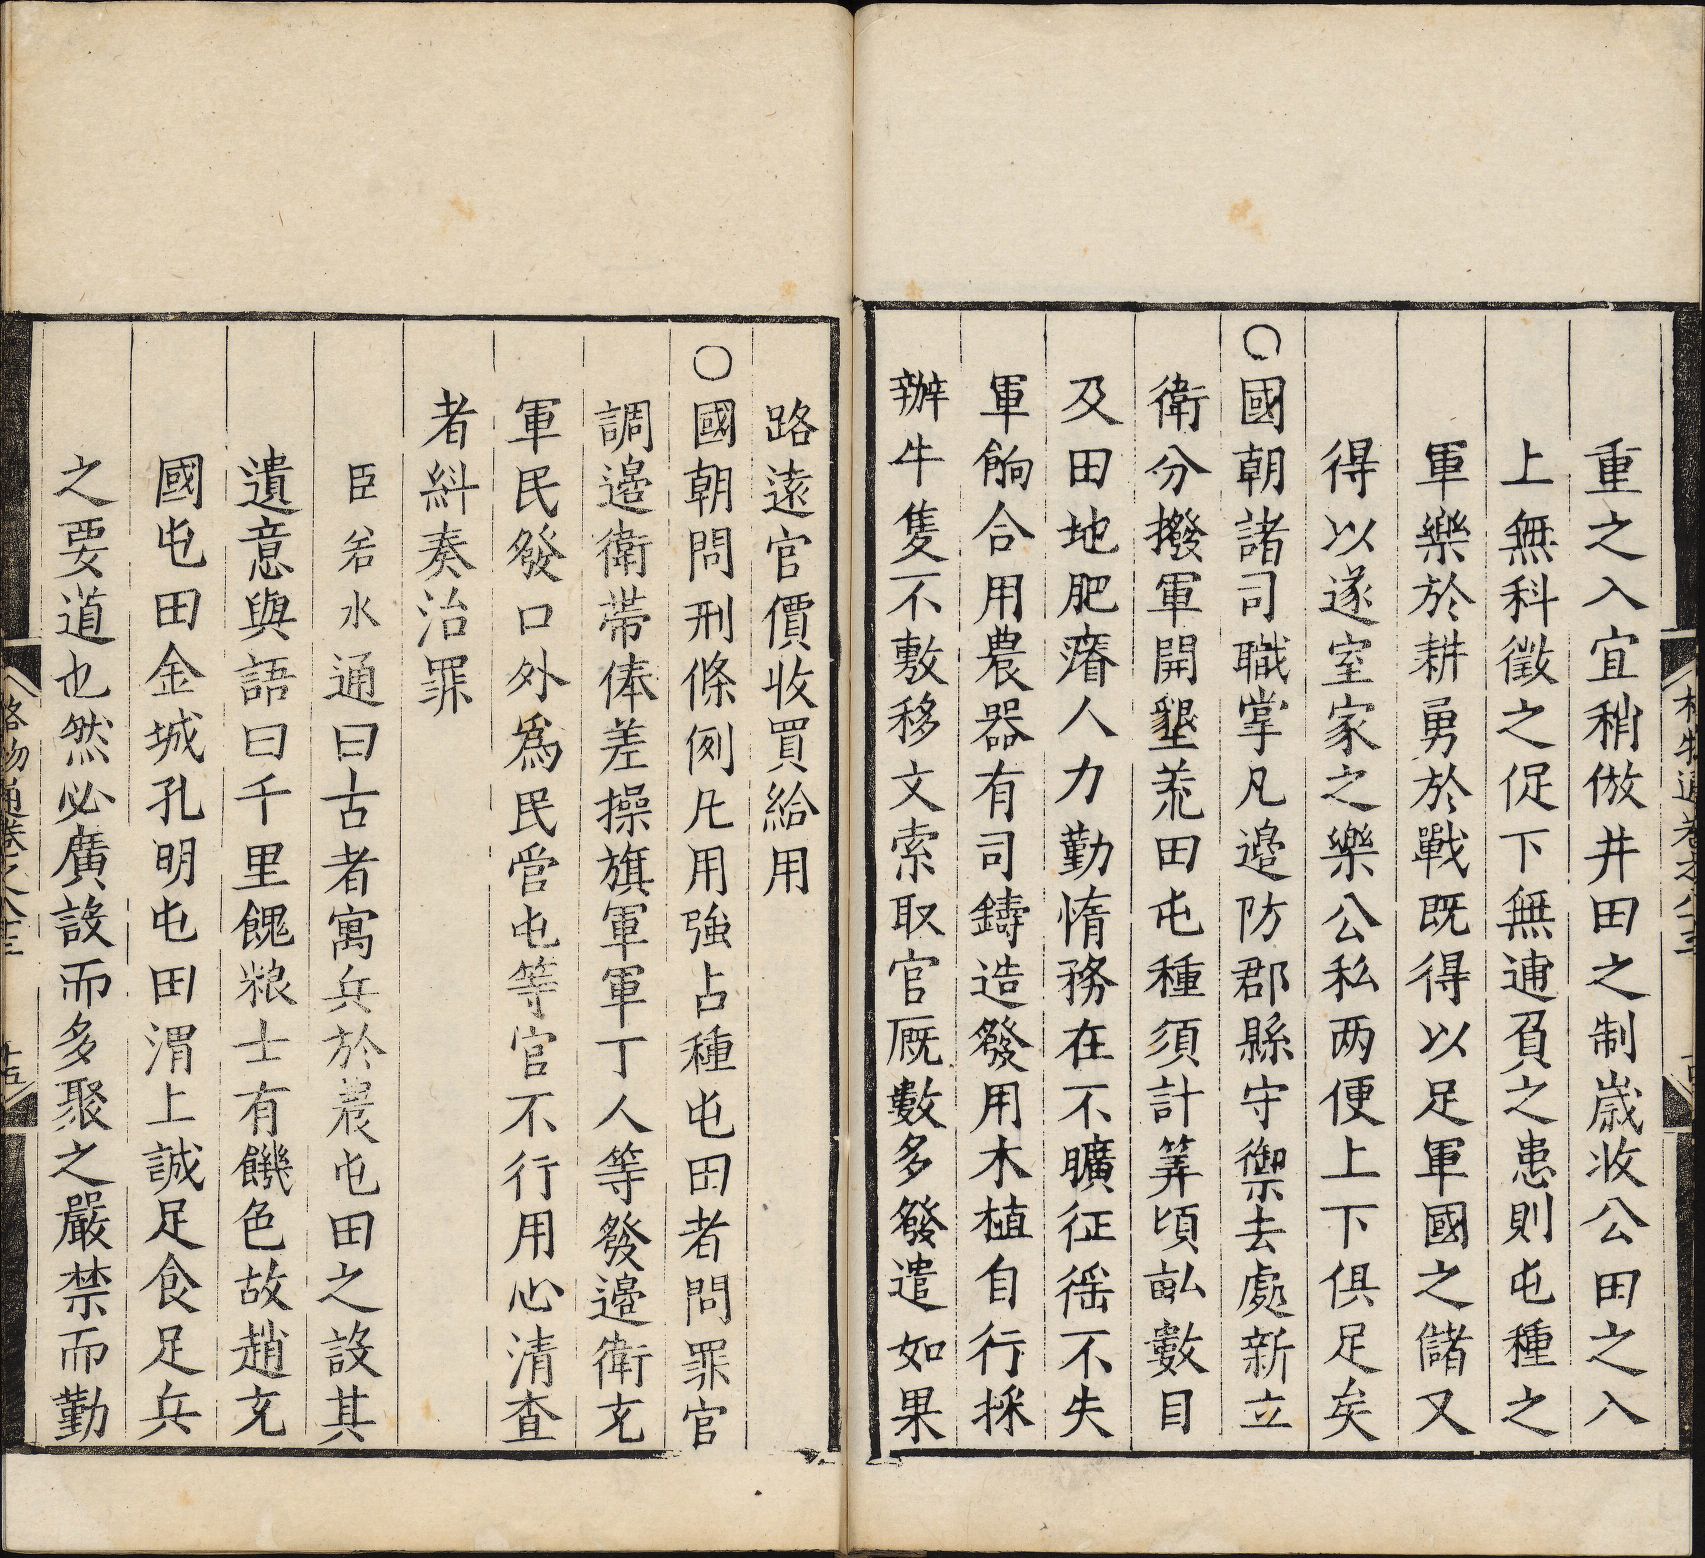 重之入宜稍倣井田之制歲收公田之入
上無科徵之促下無逋負之患則屯種之
軍樂於耕勇於戰既得以足軍國之儲又
得以遂室家之樂公私两便上下俱足矣
○國朝諸司職掌凡邉防郡縣守禦去處新立
衛分撥軍開墾荒田屯種須計筭頃畝數目
及田地肥瘠人力勤惰務在不曠征徭不失
軍餉合用農器有司鑄造發用木植自行採
辦牛隻不敷移文索取官厩數多發遣如果
路遠官價收買給用
○國朝問刑條例凡用強占種屯田者問罪官
調邉衛帶俸差操旗軍軍丁人等發邉衛充
軍民發口外爲民管屯等官不行用心清查
者糾奏治罪
臣若水通曰古者寓兵於農屯田之設其
遺意與語曰千里餽粮士有饑色故趙充
國屯田金城孔明屯田渭上誠足食足兵
之要道也然必廣設而多聚之嚴禁而勤
格物通卷之八十三
十五